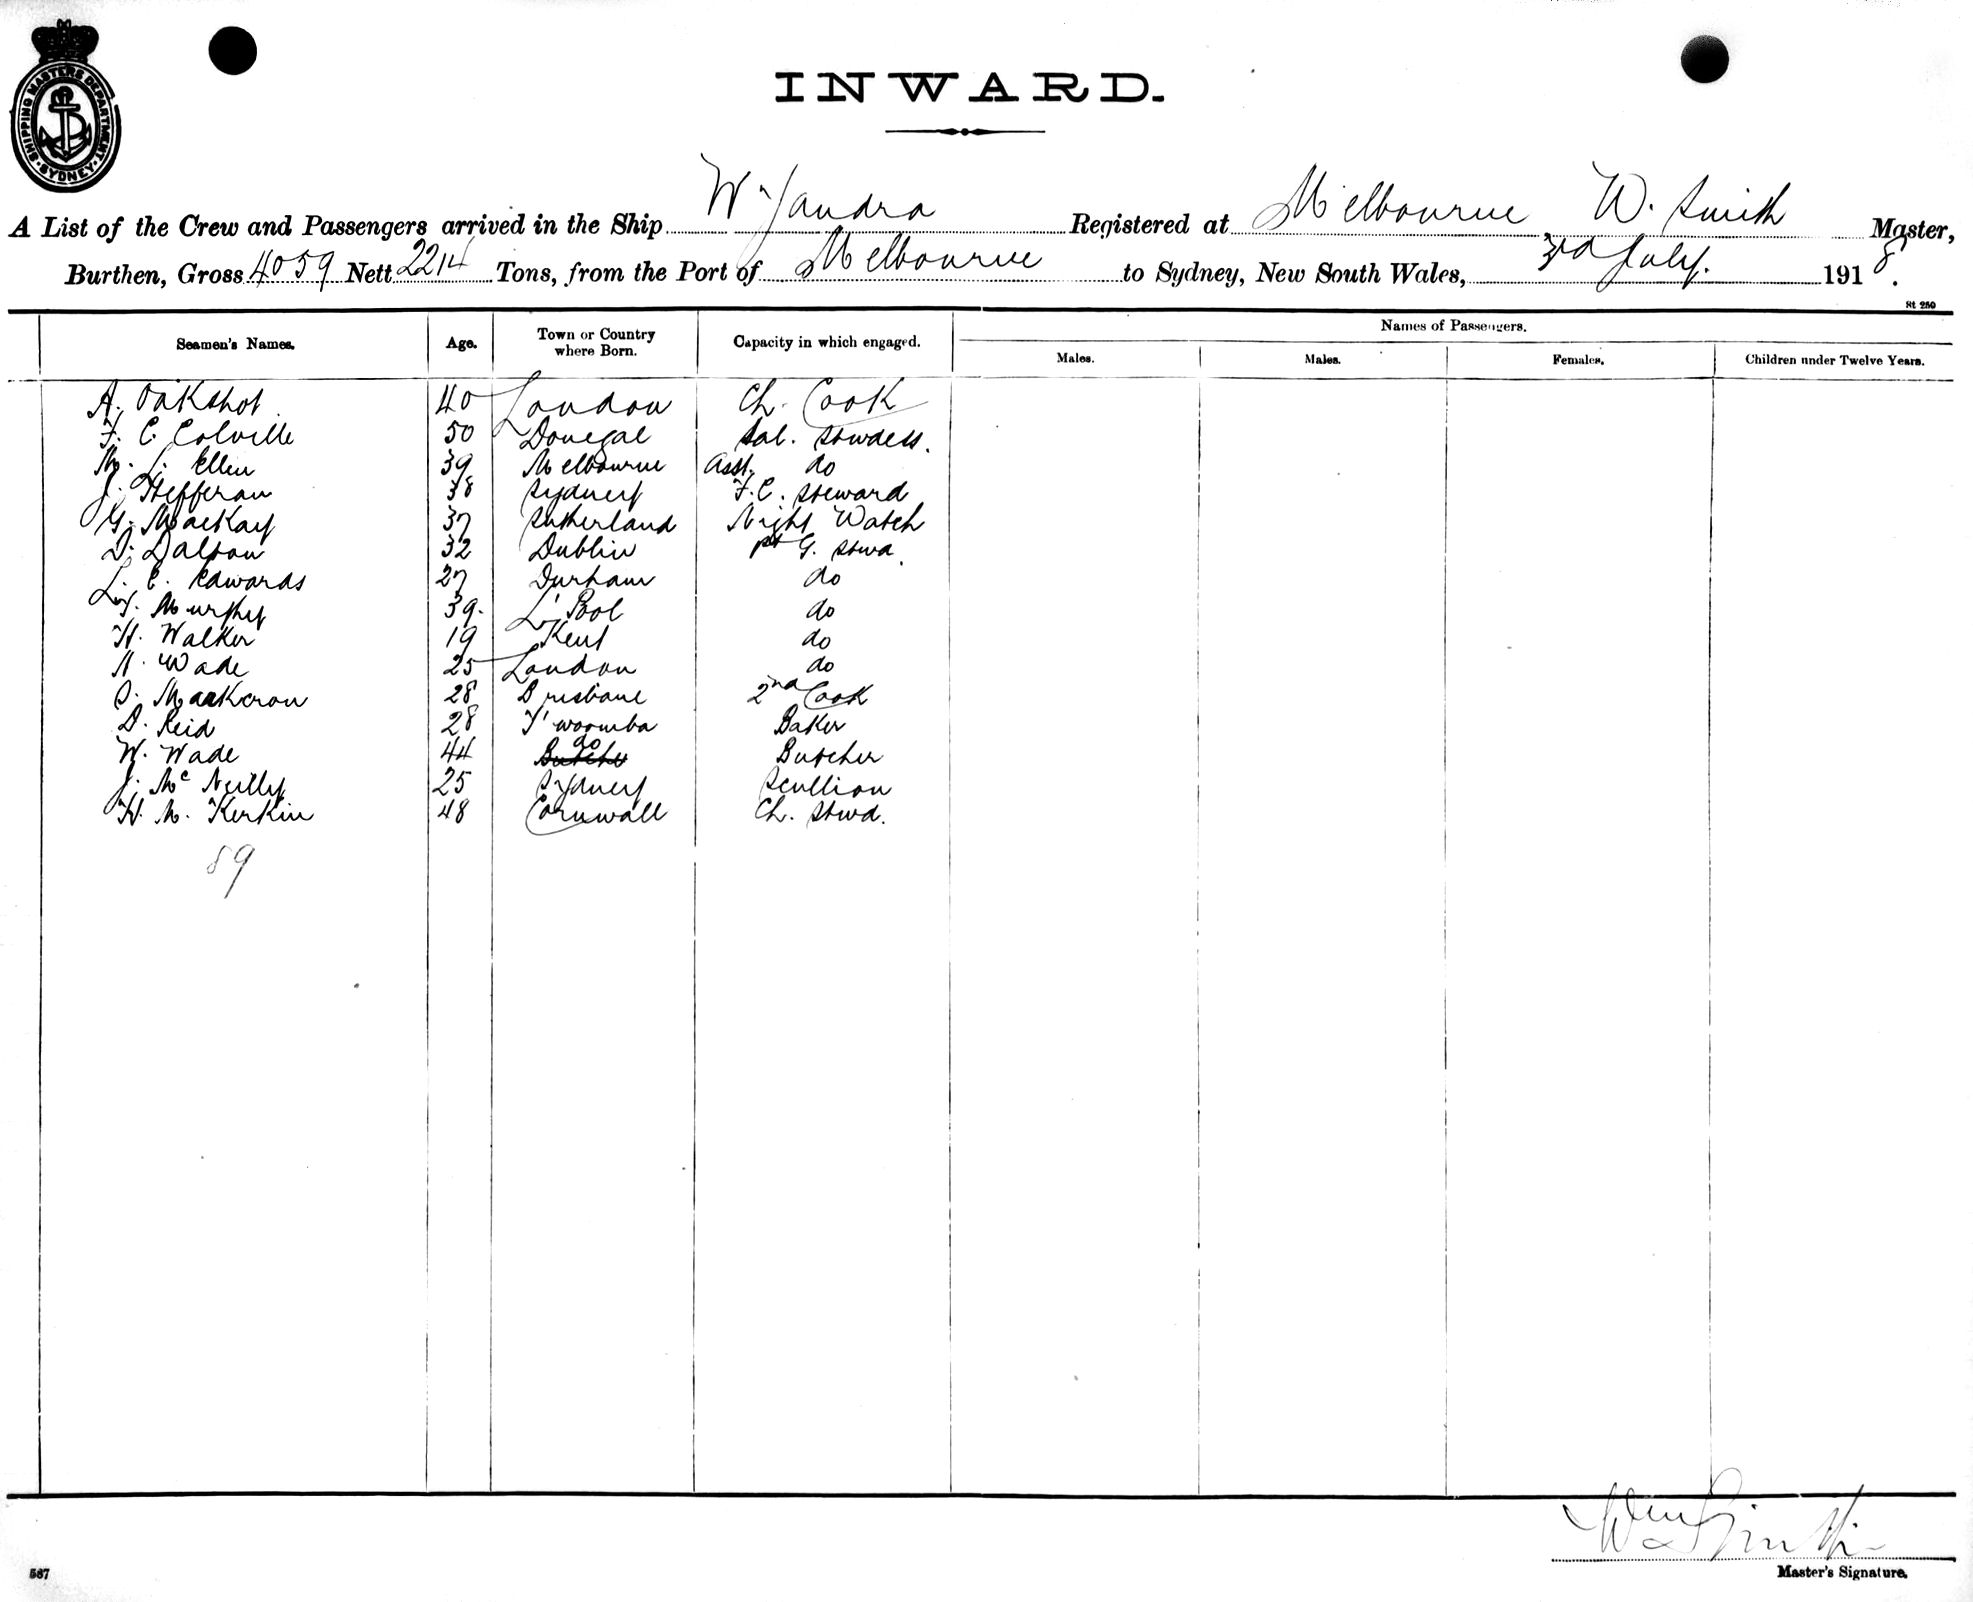 SHIPPING MASTERS DEPARTMENT · SYDNEY ·
INWARD.
A List of the Crew and Passengers arrived in the Ship Wyandra Registered at Melbourne W. Smith Master,
Burthen, Gross 4059 Nett 2214 Tons, from the Port of Melbourne to Sydney, New South Wales, 3rd July. 1918.
St 250
Seamen's Names. Age. Town or Country where Born. Capacity in which engaged. Names of Passengers.
Males. Males. Females. Children under Twelve Years.
A. Oakshot 40 London Ch. Cook
F. C. Colville 50 Donegal Sal. Stwdess.
M. L. Ellen 39 Melbourne Asst. do
J. Hefferan 38 Sydney F.C. Steward
G. Mackay 37 Sutherland Night Watch
D. Dalton 32 Dublin G. Stwd.
L. C. Edwards 27 Durham do
Murphy 39. L'Pool do
H. Walker 19 Kent do
Wade 25 London do
Mackcron 28 Brisbane 2nd Cook
D. Reid 28 T'woomba Baker
W. Wade 44 do Butcher
J. McNeilly 25 Sydney Scullion
H. M. Kerkin 48 Cornwall Ch. Stwd.
89
Wm Smith
Master's Signature.
567